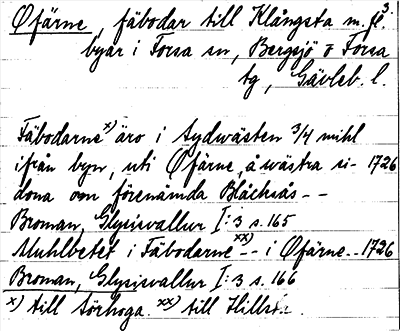 Øfärne, fäbodar till Klångsta m. fl. 3.
byar i Forsa sn, Bergsjö o Forsa
tg, Gävleb. l.
Fäbodarne x) äro i sydwästen 3/4 mihl
ifrån byn, uti Øfärne, å wästra si- 1726
dona om förenämda Blåcksås--
Broman, Glysisvallur I:3 s. 165
Muhlbetet i Fäbodarne xx)-- i Øfärne-- 1726
Broman, Glysisvallur I:3 s. 166
x) till Sörhoga. xx) till